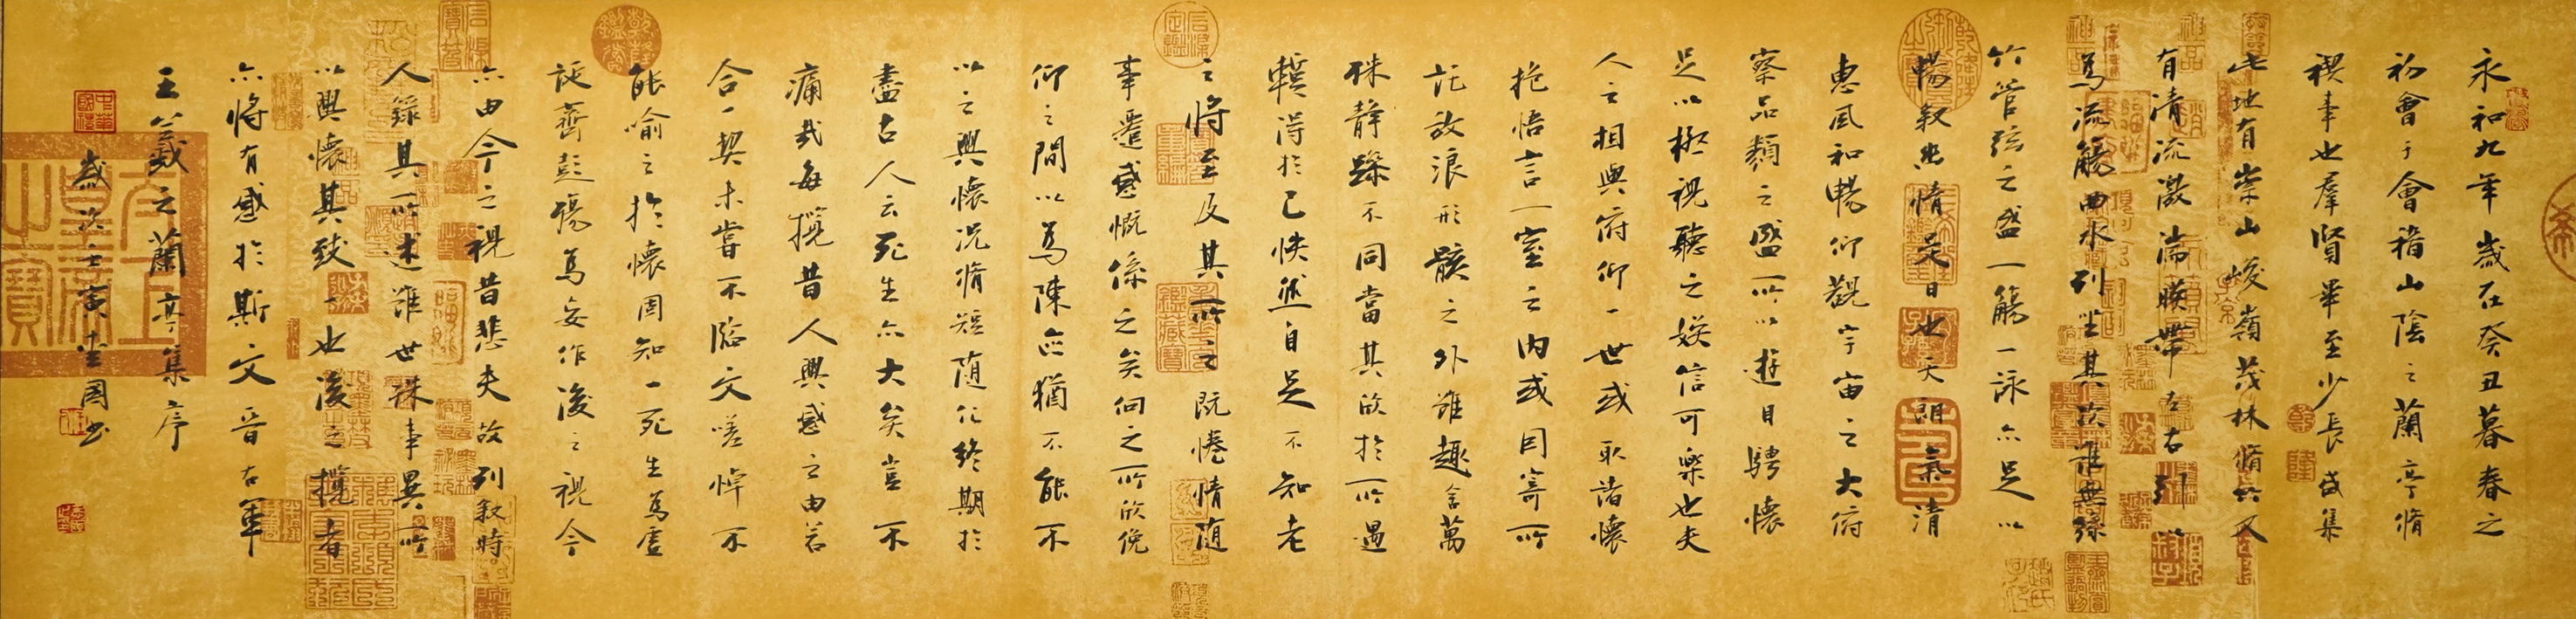 永和九年歲在癸丑暮春之
初會于會稽山陰之蘭亭脩
禊事也羣賢畢至少長咸集
此地有崇山峻嶺茂林脩竹又
有清流激湍暎帶左右引以
為流觴曲水列坐其次雖無絲
竹管弦之盛一觴一詠亦足以
暢敘幽情是日也天朗氣清
惠風和暢仰觀宇宙之大俯
察品類之盛所以遊目騁懷
足以極視聽之娛信可樂也夫
人之相與俯仰一世或取諸懷
抱悟言一室之內或因寄所
託放浪形骸之外雖趣舍萬
殊靜躁不同當其欣於所遇
輒得於己怏然自足不知老
之將至及其所之既惓情隨
事遷感慨係之矣向之所欣俛
仰之間以為陳迹猶不能不
以之興懷況脩短隨化終期於
盡古人云死生亦大矣豈不
痛哉每攬昔人興感之由若
合一契未嘗不臨文嗟悼不
能喻之於懷固知一死生為虛
誕齊彭殤為妄作後之視今
亦由今之視昔悲夫故列敘時
人錄其所述雖世殊事異所
以興懷其致一也後之攬者
亦將有感於斯文晉右軍
王羲之蘭亭集序
歲次壬寅